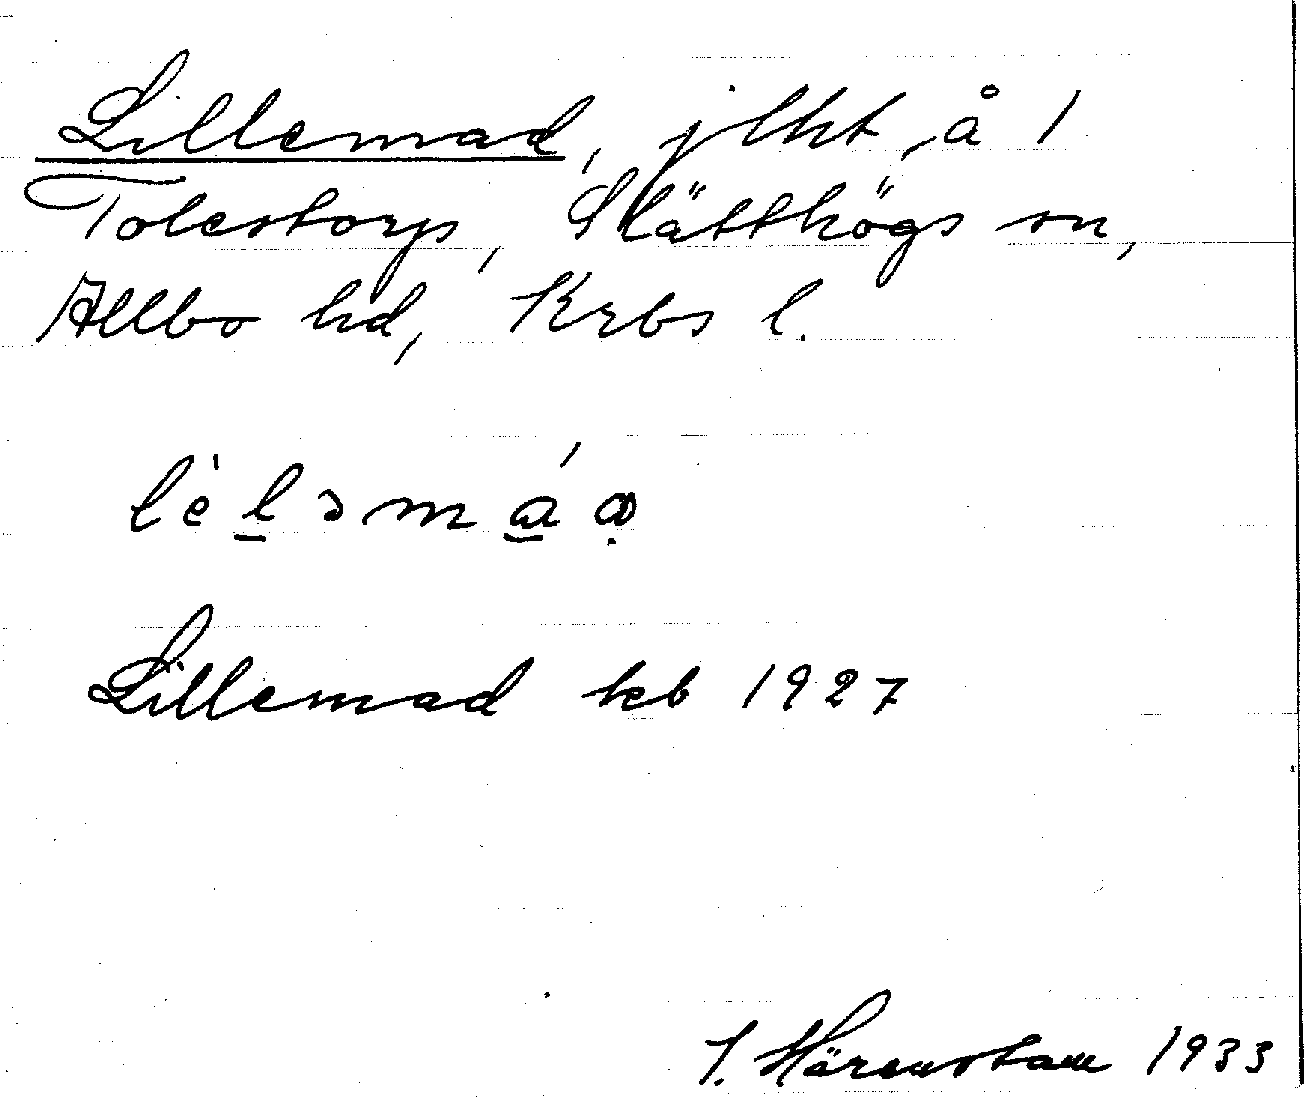 Lillemad, jlht, å 1
Tolestorp, Slätthögs sn,
Allbo hd, Krbs l.
Lillemad kb 1927
J. Härenstam 1933